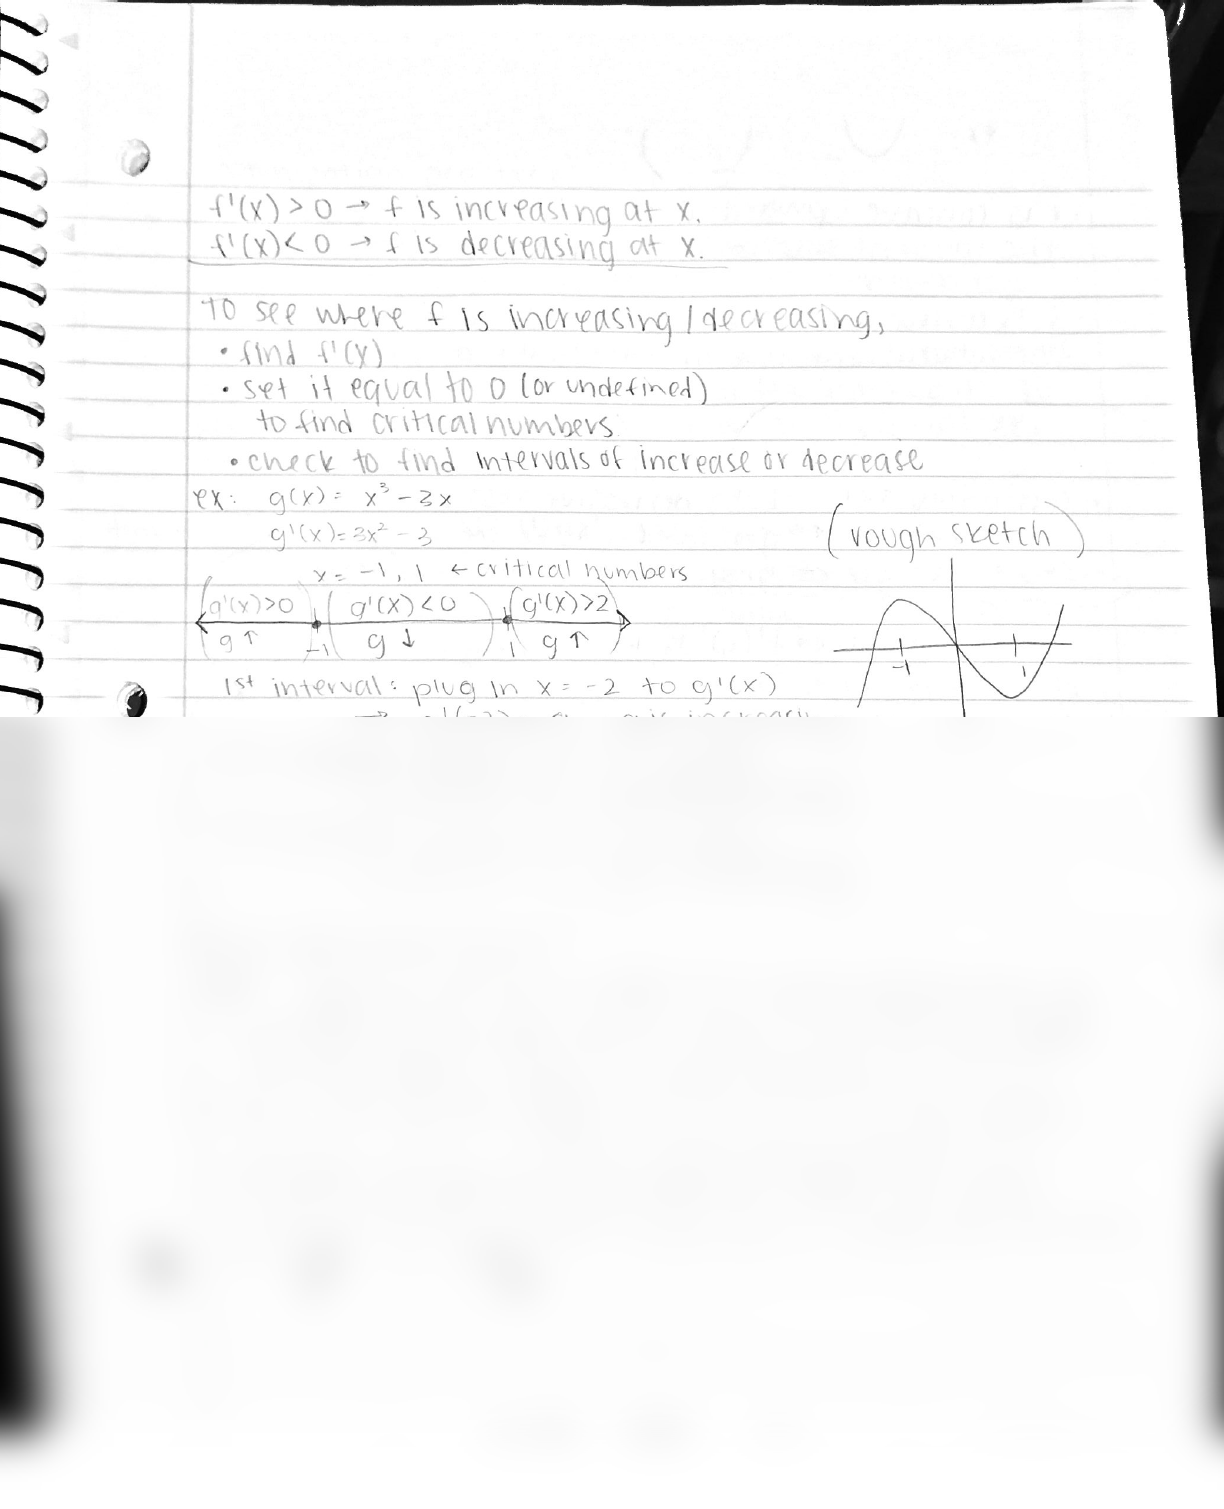 f'(x) > 0 → f is increasing at x.
f'(x) < 0 → f is decreasing at x.
to see where f is increasing / decreasing,
• find f'(x)
• set it equal to 0 (or undefined)
to find critical numbers
• check to find intervals of increase or decrease
ex: g(x) = x³ - 3x
g'(x) = 3x² - 3
(rough sketch)
x = -1, 1 ← critical numbers
(g'(x)>0) (g'(x)<0) (g'(x)>2)
g ↑ -1 g ↓ 1 g ↑
-1 1
1st interval: plug in x = -2 to g'(x)